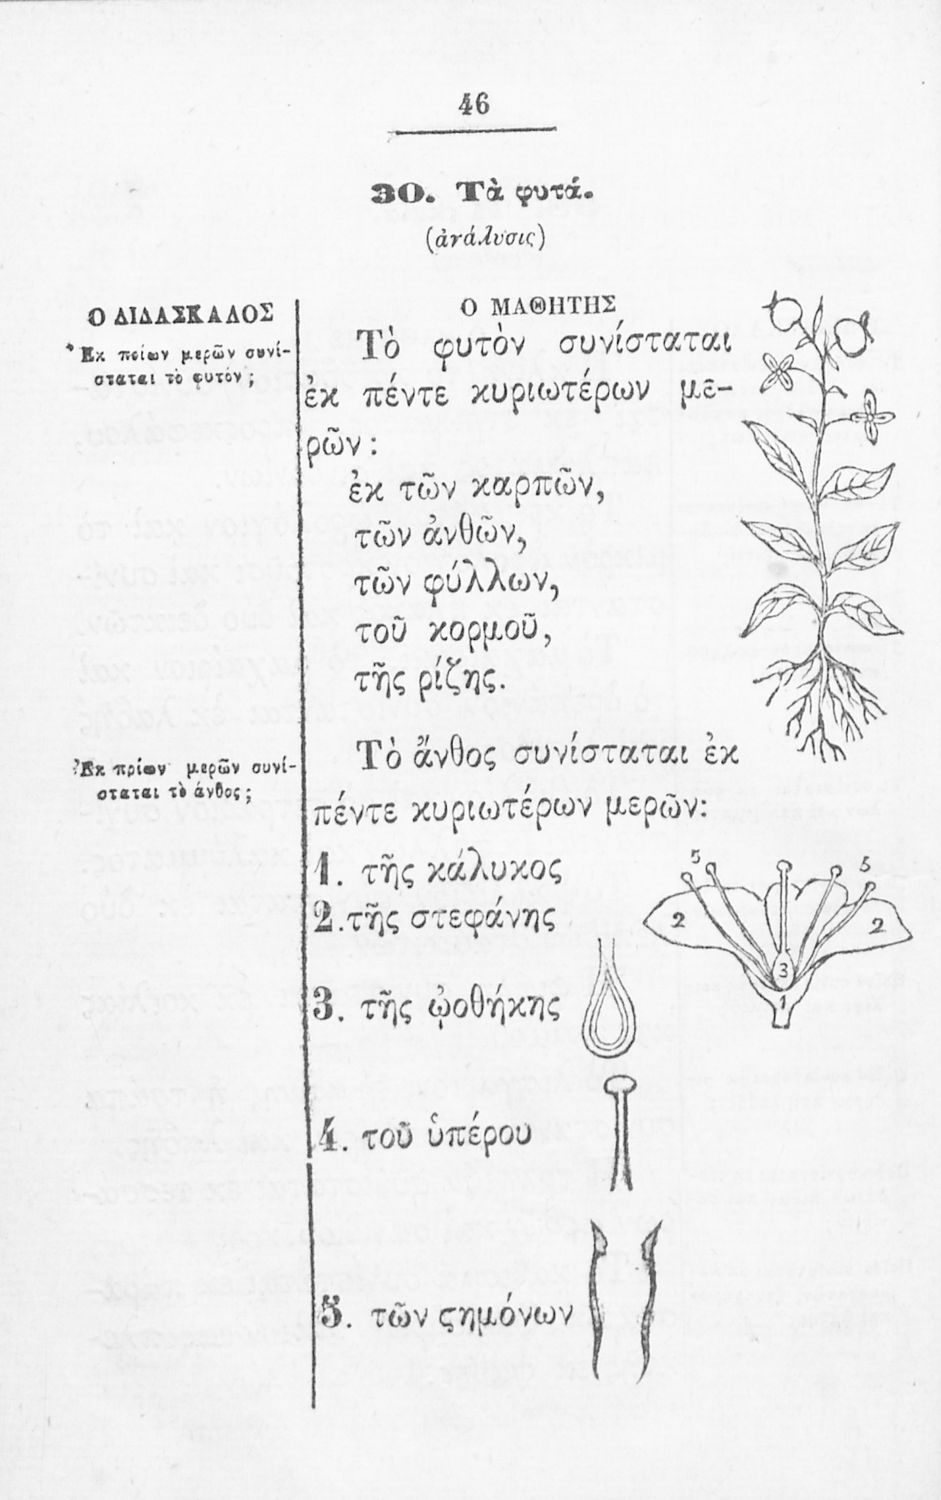 46
30. Τὰ φυτά.
(ἀνάλυσις)
Ο ΔΙΔΑΣΚΑΛΟΣ
Ἐκ ποίων μερῶν συνί-
σταται τὸ φυτόν ;
Ο ΜΑΘΗΤΗΣ
Τὸ φυτὸν συνίσταται
ἐκ πέντε κυριωτέρων με-
ρῶν :
ἐκ τῶν καρπῶν,
τῶν ἀνθῶν,
τῶν φύλλων,
τοῦ κορμοῦ,
τῆς ρίζης.
Ἐκ πρίων μερῶν συνί-
σταται τὸ άνθος ;
Τὸ ἄνθος συνίσταται ἐκ
πέντε κυριωτέρων μερῶν:
1. τῆς κάλυκος
2. τῆς στεφάνης
3. τῆς ᾠοθήκης
4. τοῦ ὑπέρου
5. τῶν ϛημόνων
5 5
2 2
3
1